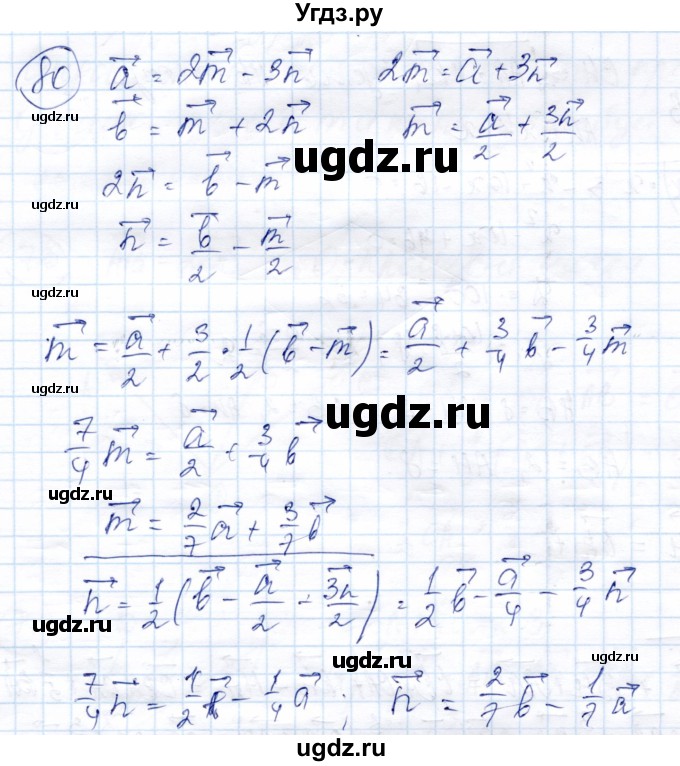 Угдз.ру
80 a⃗ = 2m⃗ - 3n⃗   2m⃗ = a⃗ + 3n⃗
ugdz.ru
b⃗ = m⃗ + 2n⃗   m⃗ = a⃗/2 + 3n⃗/2
ugdz.ru
2n⃗ = b⃗ - m⃗
ugdz.ru
n⃗ = b⃗/2 - m⃗/2
ugdz.ru
m⃗ = a⃗/2 + 3/2 · 1/2 (b⃗ - m⃗) = a⃗/2 + 3/4 b⃗ - 3/4 m⃗
ugdz.ru
ugdz.ru
7/4 m⃗ = a⃗/2 + 3/4 b⃗
ugdz.ru
m⃗ = 2/7 a⃗ + 3/7 b⃗
n⃗ = 1/2 (b⃗ - a⃗/2 - 3n⃗/2) = 1/2 b⃗ - a⃗/4 - 3/4 n⃗
ugdz.ru
ugdz.ru
ugdz.ru
7/4 n⃗ = 1/2 b⃗ - 1/4 a⃗ ; n⃗ = 2/7 b⃗ - 1/7 a⃗
ugdz.ru